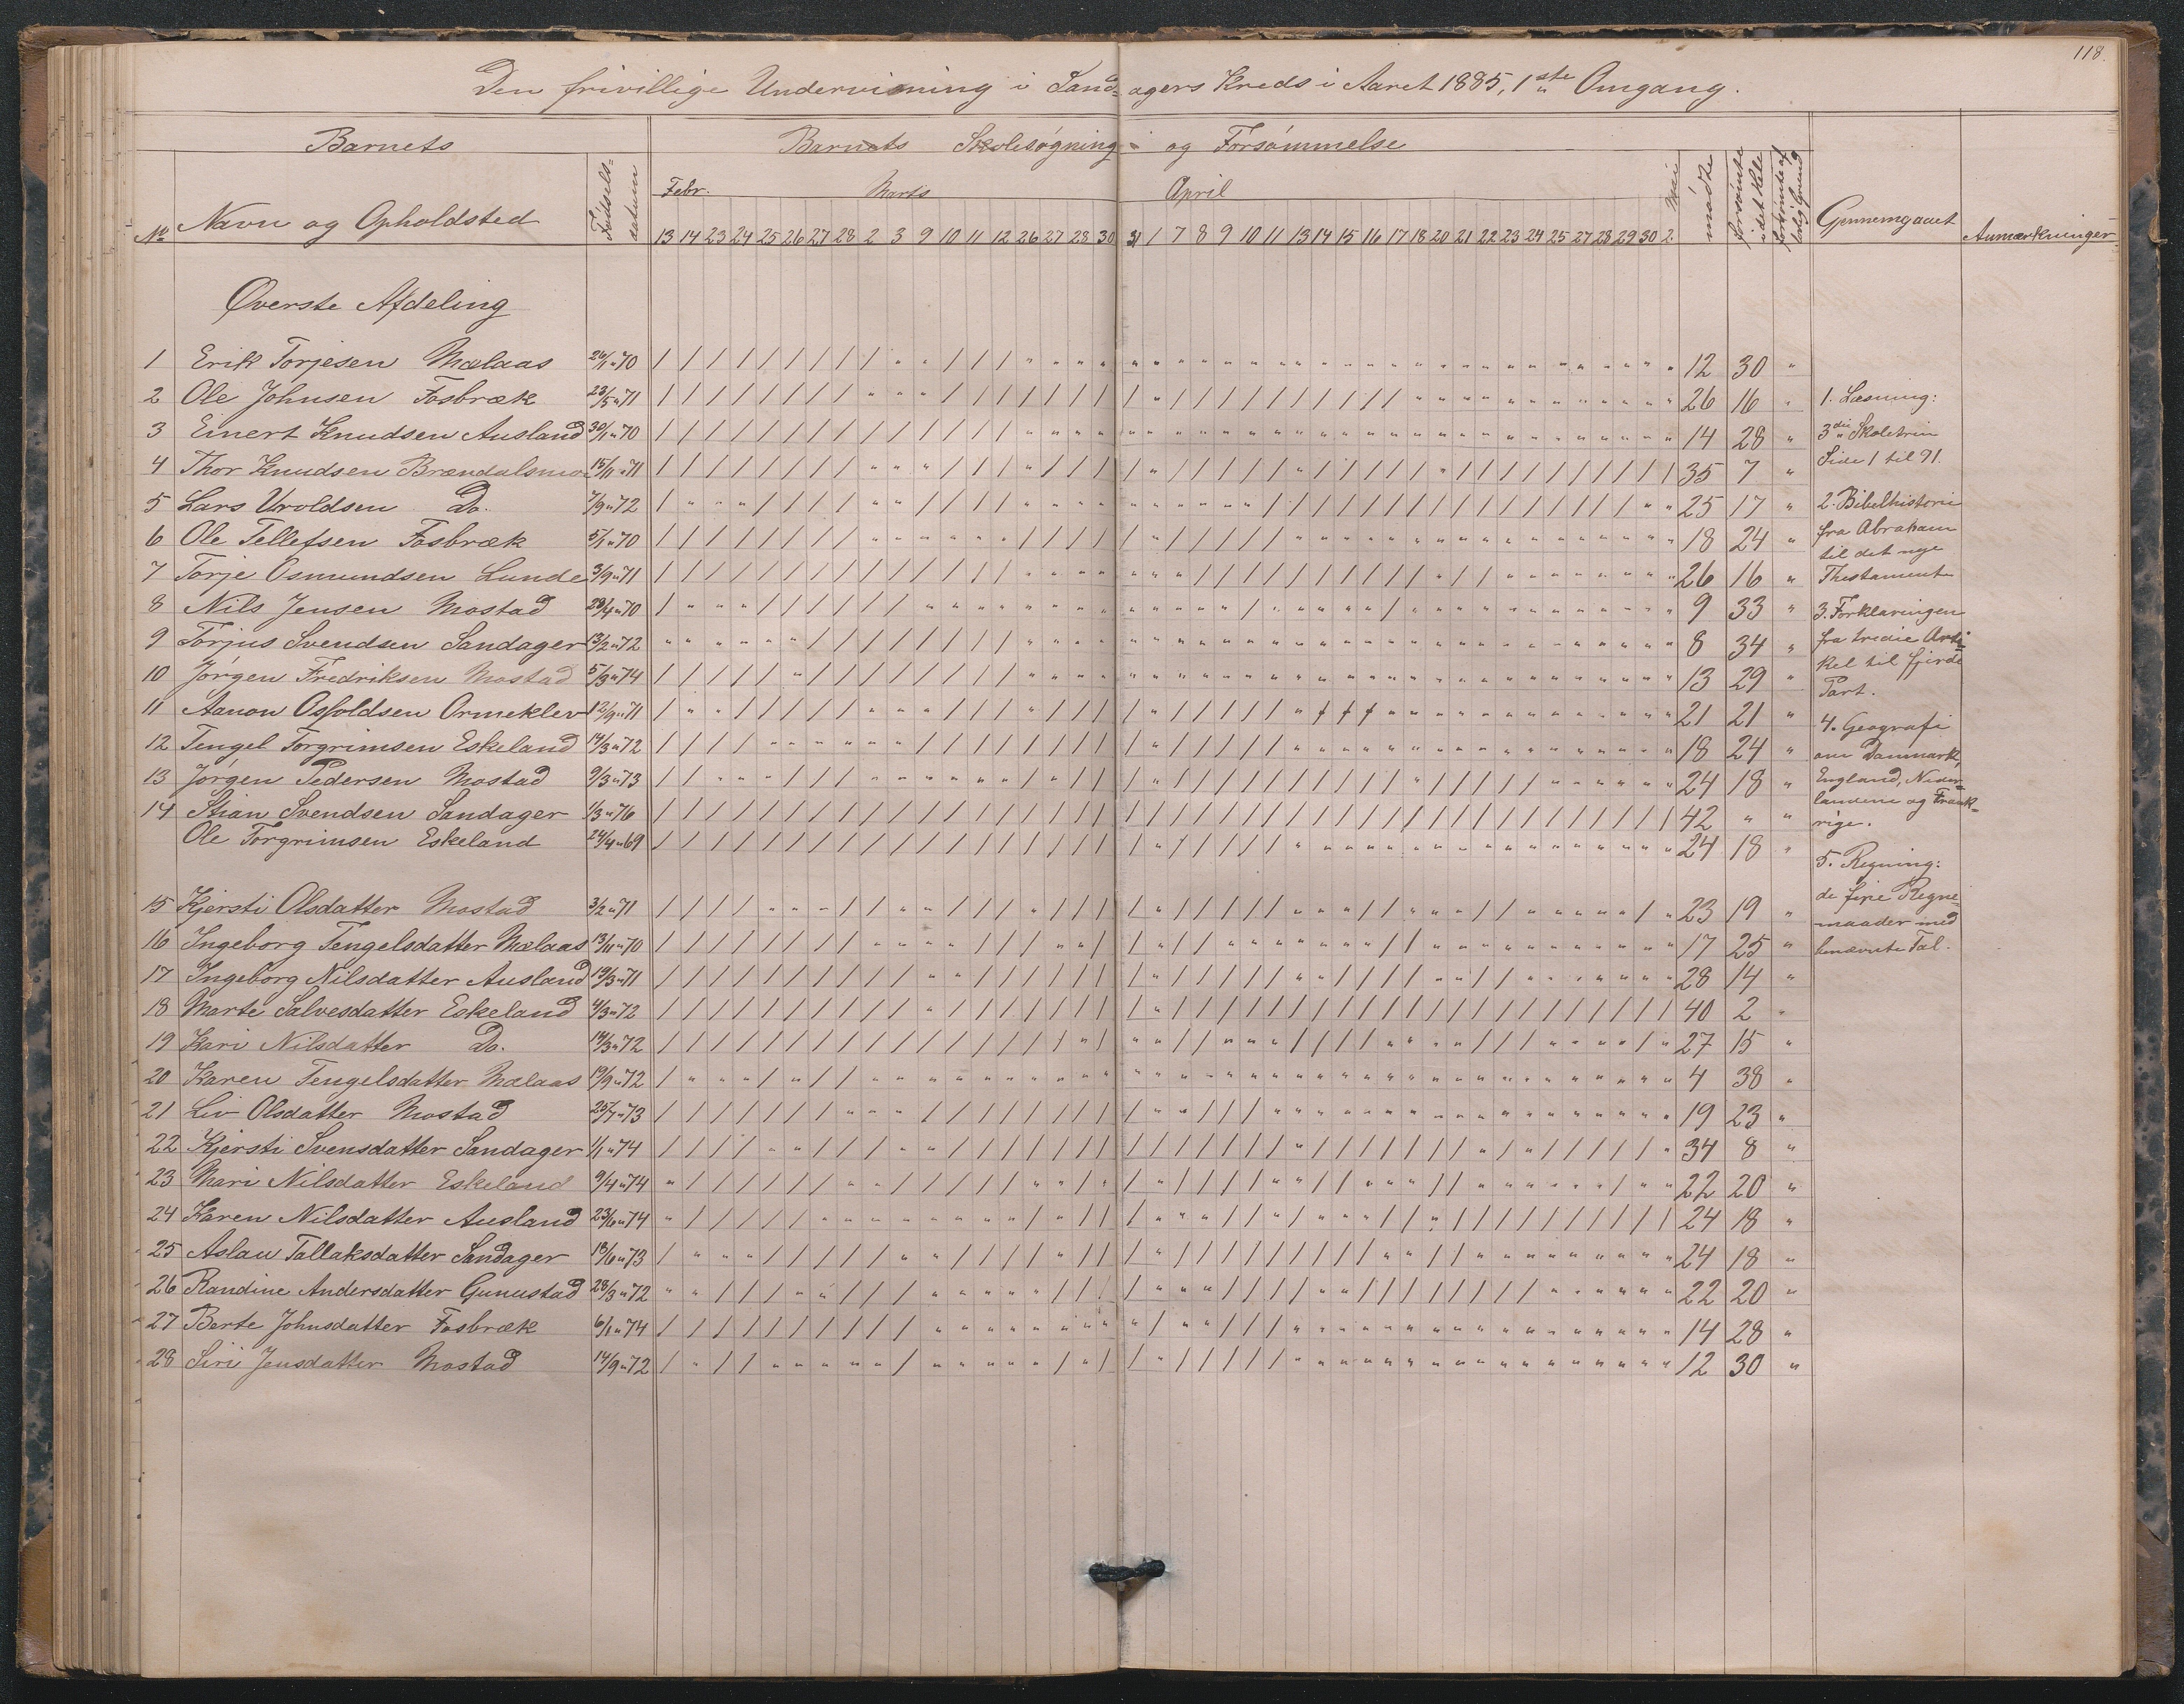 118.
Den frivillige Undervisning i Sand=agers Kreds i Aaret 1885, 1ste Omgang.
Barnets Barnets Skolesøgning og Forsømmelse
No Navn og Opholdsted Fødselsdatum Febr. Marts April Mai mødte forsømte i det Hele forsømte af lovlig Grund Gjennemgaaet Anmærkninger
13 14 23 24 25 26 27 28 2 3 9 10 11 12 26 27 28 30 31 1 7 8 9 10 11 13 14 15 16 17 18 20 21 22 23 24 25 27 28 29 30 2.
Øverste Afdeling
1 Erik Torjesen Mælaas 26/1 " 70 12 30 "
2 Ole Johnsen Fosbræk 23/5 " 71 26 16 "
3 Einert Knudsen Ausland 30/1 " 70 14 28 "
4 Thor Knudsen Brændalsmo 15/11 " 71 35 7 "
5 Lars Uroldsen Do. 7/9 " 72 25 17 "
6 Ole Tellefsen Fosbræk 5/1 " 70 18 24 "
7 Torje Osmundsen Lunde 3/9 " 71 26 16 "
8 Nils Jensen Mostad 28/4 " 70 9 33 "
9 Torjus Svendsen Sandager 13/2 " 72 8 34 "
10 Jørgen Fredriksen Mostad 5/3 " 74 13 29 "
11 Aanon Osfoldsen Ormeklev 12/9 " 71 21 21 "
12 Tengel Torgrimsen Eskeland 14/3 " 72 18 24 "
13 Jørgen Pedersen Mostad 9/3 " 73 24 18 "
14 Stian Svendsen Sandager 1/3 " 76 42 " "
Ole Torgrimsen Eskeland 24/4 " 69 24 18 "
15 Kjersti Olsdatter Mostad 3/2 " 71 23 19 "
16 Ingeborg Tengelsdatter Mælaas 13/11 " 70 17 25 "
17 Ingeborg Nilsdatter Ausland 19/3 " 71 28 14 "
18 Marte Salvesdatter Eskeland 4/3 " 72 40 2 "
19 Kari Nilsdatter Do. 19/3 " 72 27 15 "
20 Karen Tengelsdatter Mælaas 19/9 " 72 4 38 "
21 Liv Olsdatter Mostad 25/7 " 73 19 23 "
22 Kjersti Svensdatter Sandager 1/1 " 74 34 8 "
23 Mari Nilsdatter Eskeland 9/4 " 74 22 20 "
24 Karen Nilsdatter Ausland 23/6 " 74 24 18 "
25 Aslau Tallaksdatter Sandager 18/6 " 73 24 18 "
26 Randine Andersdatter Gunustad 28/3 " 72 22 20 "
27 Berte Johnsdatter Fosbræk 6/1 " 74 14 28 "
28 Siri Jensdatter Mostad 14/9 " 72 12 30 "
1. Læsning:
3die Skoletrin
Side 1 til 91.
2. Bibelhistorie
fra Abraham
til det nye
Thestamente
3. Forklaringen
fra tredie Arti=
kel til fjerde
Part.
4. Geografi
om Danmark,
England, Neder=
landene og Frank=
rige.
5. Regning:
de fire Regne=
maader med
benævnte Tal.